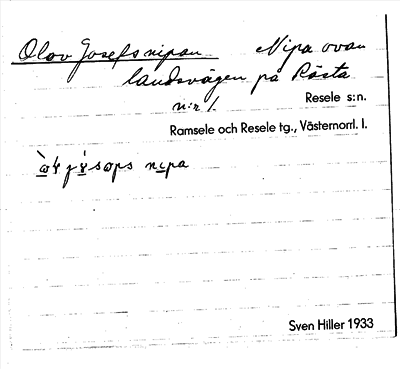 Olov Josefsnipan Nipa ovan
landsvägen på Rästa
n:r 1.
Resele s:n.
Ramsele och Resele tg., Västernorrl. l.
nıpa
Sven Hiller 1933